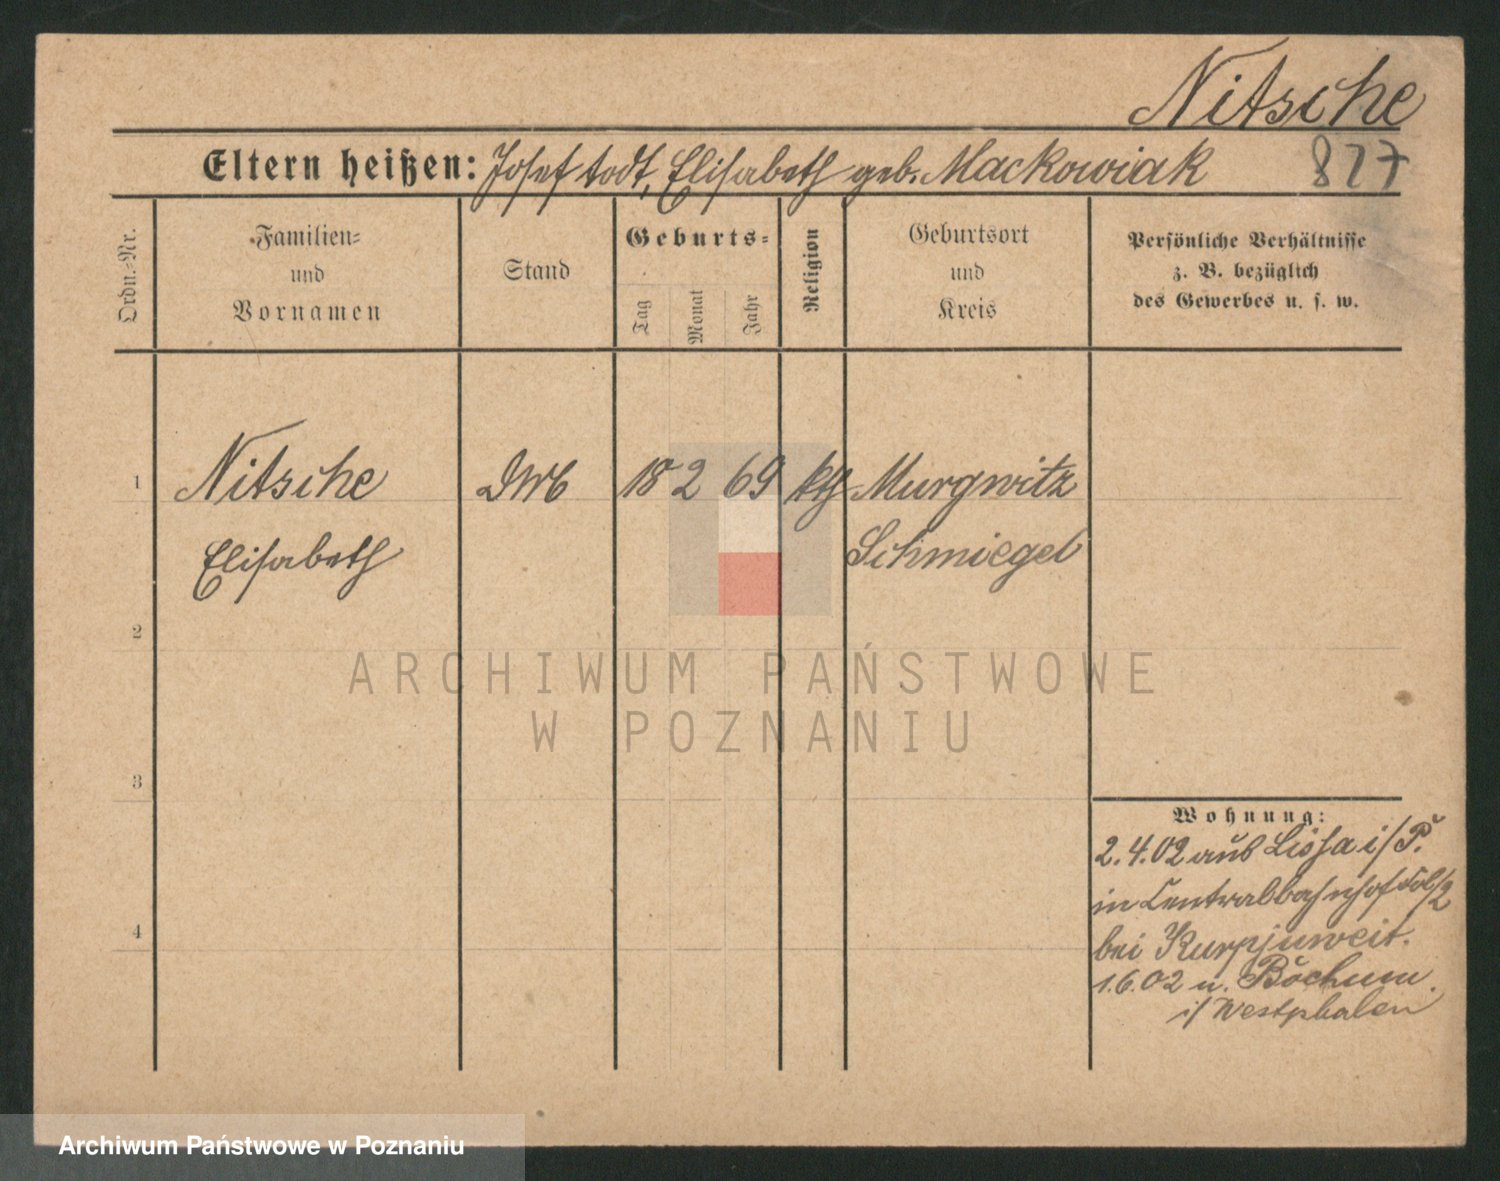 Nitsche
827
Eltern heißen: Josef todt, Elisabeth geb. Mackowiak
Ordn.-Nr.
Familien-
und
Vornamen
Stand
Geburts-
Tag
Monat
Jahr
Religion
Geburtsort
und
Kreis
Persönliche Verhältnisse
z. B. bezüglich
des Gewerbes u. s. w.
1 Nitsche 18 2 69 kth Murgwitz
Elisabeth Schmiegel
2
ARCHIWUM PAŃSTWOWE
W POZNANIU
3
Wohnung:
2.4.02 aus Lissa i/P.
in Centralbahnhof
4
bei Kurpjuweit.
1.6.02 n. Bochum.
i/Westphalen
Archiwum Państwowe w Poznaniu